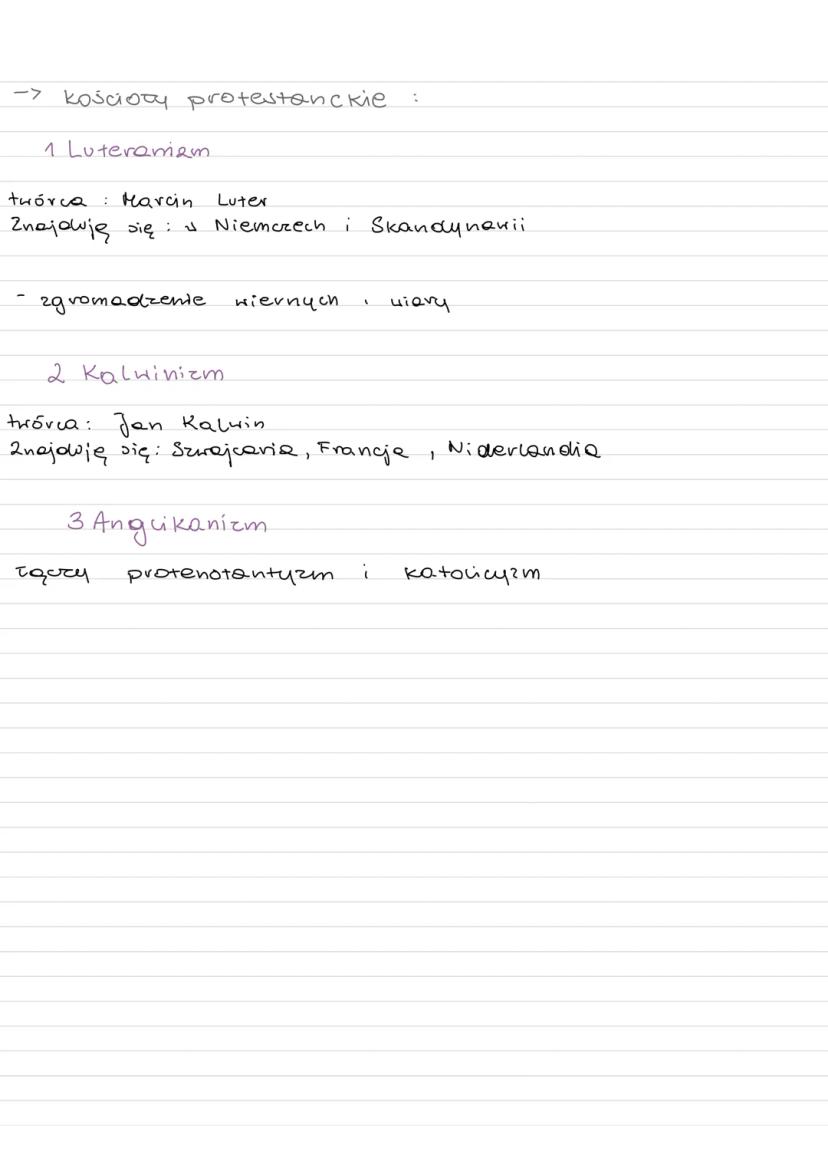 -> kościoły protestanckie :
1 Luteranizm
twórca : Marcin Luter
Znajdują się : w Niemczech i Skandynawii
- zgromadzenie wiernych i wiary
2 Kalwinizm
twórca: Jan Kalwin
Znajdują się: Szwajcaria, Francja , Niderlandia
3 Anglikanizm
łączy protenstantyzm i katolicyzm